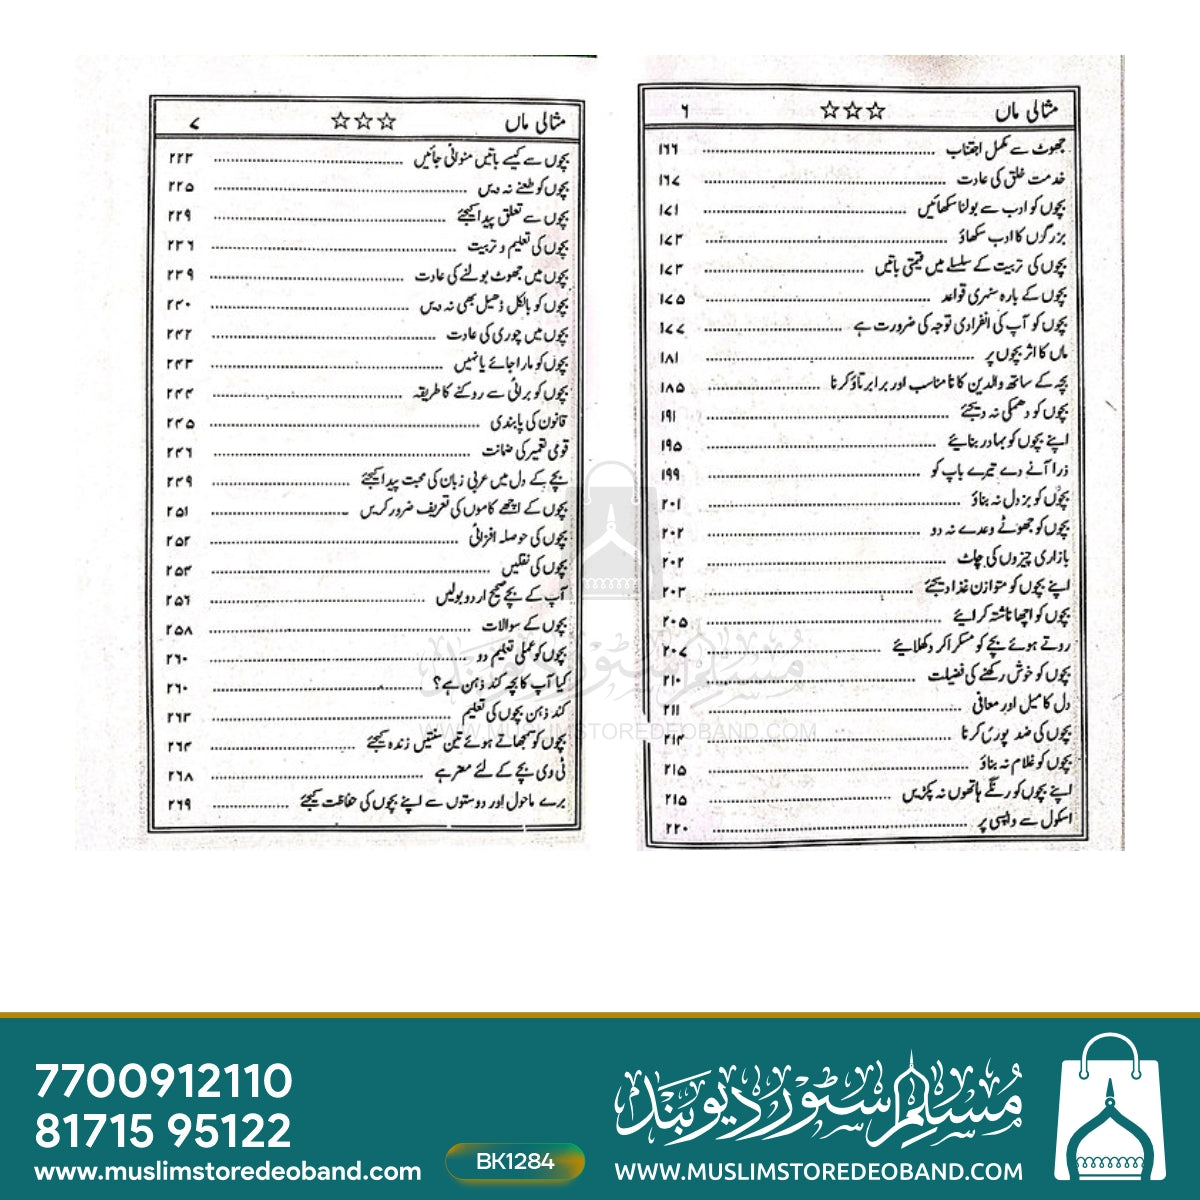 مثالی ماں ☆☆☆ ۶
جھوٹ سے مکمل اجتناب ........ ۱۶۶
خدمت خلق کی عادت ........ ۱۶۷
بچوں کو ادب سے بولنا سکھائیں ........ ۱۷۱
بزرگوں کا ادب سکھاؤ ........ ۱۷۳
بچوں کی تربیت کے سلسلے میں قیمتی باتیں ........ ۱۷۳
بچوں کے بارہ سنہری قواعد ........ ۱۷۵
بچوں کو آپ کی انفرادی توجہ کی ضرورت ہے ........ ۱۷۷
ماں کا اثر بچوں پر ........ ۱۸۱
بچہ کے ساتھ والدین کا نامناسب اور برا برتاؤ کرنا ........ ۱۸۵
بچوں کو دھمکی نہ دیجئے ........ ۱۹۱
اپنے بچوں کو بہادر بنائیے ........ ۱۹۵
ذرا آنے دے تیرے باپ کو ........ ۱۹۹
بچوں کو بزدل نہ بناؤ ........ ۲۰۱
بچوں کو جھوٹے وعدے نہ دو ........ ۲۰۲
بازاری چیزوں کی چاٹ ........ ۲۰۲
اپنے بچوں کو متوازن غذا دیجئے ........ ۲۰۳
بچوں کو اچھا ناشتہ کرائیے ........ ۲۰۵
روتے ہوئے بچے کو مسکرا کر دکھلائیے ........ ۲۰۷
بچوں کو خوش رکھنے کی فضیلت ........ ۲۱۰
دل کا میل اور معافی ........ ۲۱۱
بچوں کی ضد پوری کرنا ........ ۲۱۴
بچوں کو غلام نہ بناؤ ........ ۲۱۵
اپنے بچوں کو رنگے ہاتھوں نہ پکڑیں ........ ۲۱۵
اسکول سے واپسی پر ........ ۲۲۰
مثالی ماں ☆☆☆ ۷
بچوں سے کیسے باتیں منوائی جائیں ........ ۲۲۳
بچوں کو طعنے نہ دیں ........ ۲۲۵
بچوں سے تعلق پیدا کیجئے ........ ۲۲۹
بچوں کی تعلیم و تربیت ........ ۲۳۶
بچوں میں جھوٹ بولنے کی عادت ........ ۲۳۹
بچوں کو بالکل ڈھیل بھی نہ دیں ........ ۲۴۰
بچوں میں چوری کی عادت ........ ۲۴۲
بچوں کو مارا جائے یا نہیں ........ ۲۴۳
بچوں کو برائی سے روکنے کا طریقہ ........ ۲۴۴
قانون کی پابندی ........ ۲۴۵
قومی تعمیر کی ضمانت ........ ۲۴۶
بچے کے دل میں عربی زبان کی محبت پیدا کیجئے ........ ۲۴۹
بچوں کے اچھے کاموں کی تعریف ضرور کریں ........ ۲۵۱
بچوں کی حوصلہ افزائی ........ ۲۵۲
بچوں کی نقلیں ........ ۲۵۳
آپ کے بچے صحیح اردو بولیں ........ ۲۵۶
بچوں کے سوالات ........ ۲۵۸
بچوں کو عملی تعلیم دو ........ ۲۶۰
کیا آپ کا بچہ کند ذہن ہے؟ ........ ۲۶۰
کند ذہن بچوں کی تعلیم ........ ۲۶۳
بچوں کو سمجھاتے ہوئے تین سنتیں زندہ کیجئے ........ ۲۶۴
ٹی وی بچے کے لئے مضر ہے ........ ۲۶۸
برے ماحول اور دوستوں سے اپنے بچوں کی حفاظت کیجئے ........ ۲۶۹
مسلم سٹور دیوبند
WWW.MUSLIMSTOREDEOBAND.COM
7700912110
81715 95122
www.muslimstoredeoband.com
BK1284
مسلم سٹور دیوبند
WWW.MUSLIMSTOREDEOBAND.COM